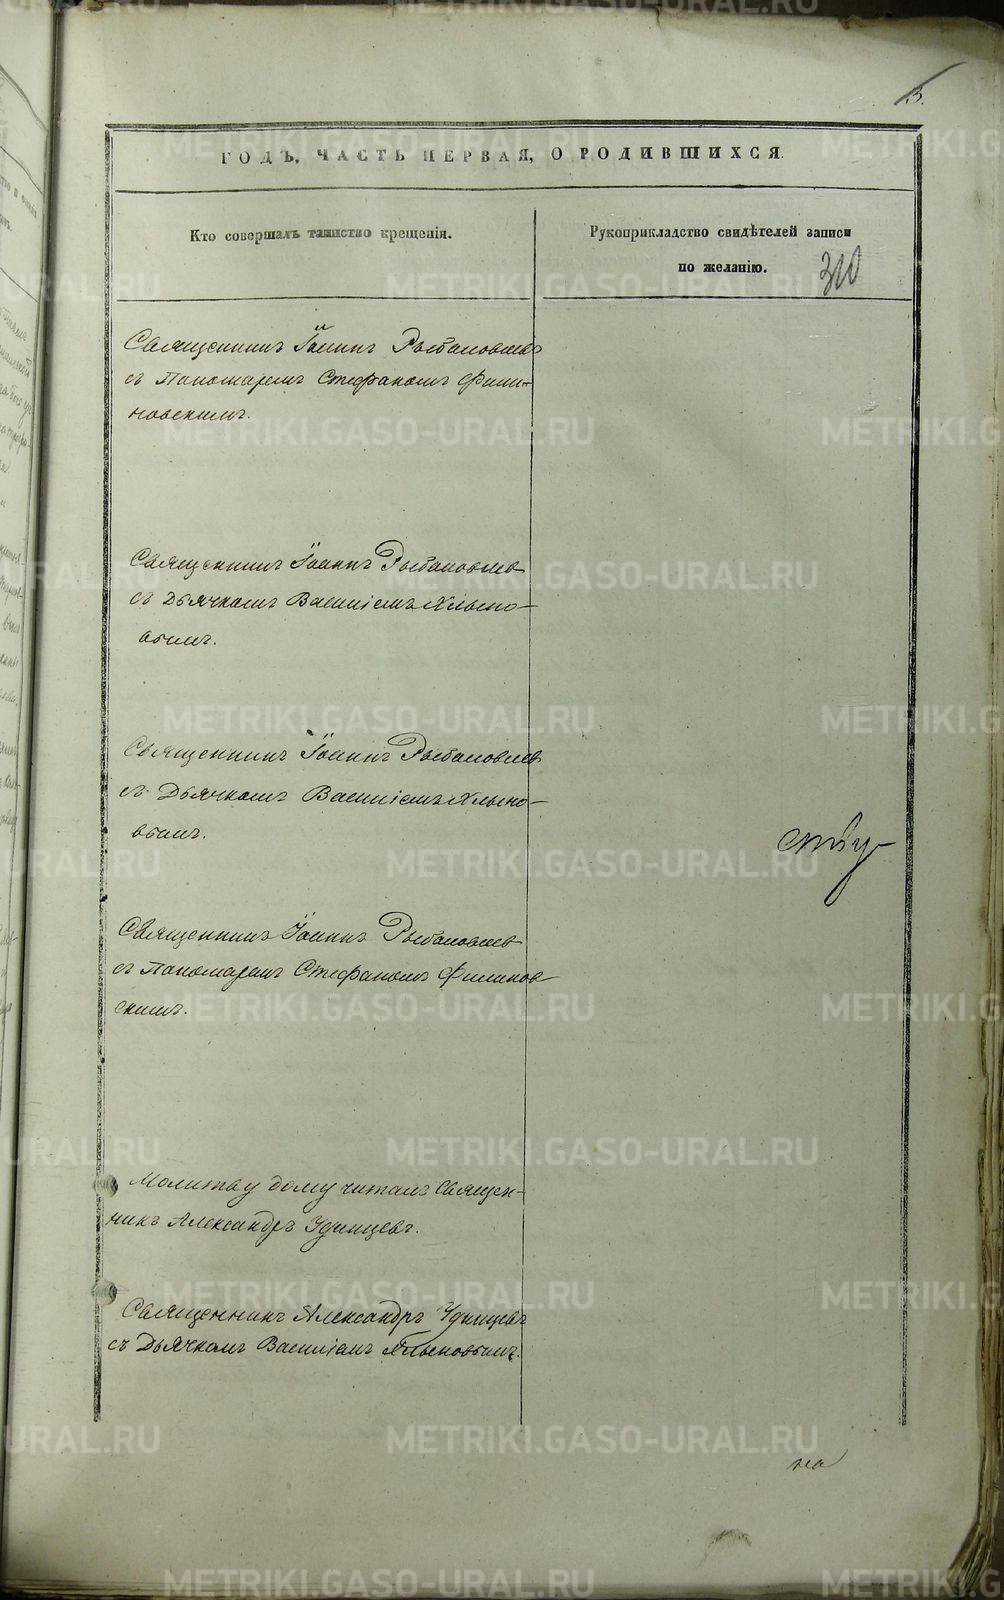 3.
ГОДЪ, ЧАСТЬ ПЕРВАЯ, О РОДИВШИХСЯ.
Кто совершалъ таинство крещенія.
Рукоприкладство свидѣтелей записи
по желанію.
310
Священникъ Іоаннъ Рыболовлевъ
съ Пономаремъ Стефаномъ Фили-
новскимъ.
Священникъ Іоаннъ Рыболовлев
съ Дьячкомъ Василіемъ Хлыно-
вымъ.
Священникъ Іоаннъ Рыболовлев
съ Дьячкомъ Василіемъ Хлыно-
вымъ.
Священникъ Іоаннъ Рыболовлев
съ Пономаремъ Стефаномъ Филинов
скимъ.
Молитву дому читалъ Священ-
никъ Александръ Удинцевъ.
Священникъ Александръ Удинцевъ
съ Дьячкомъ Василіемъ Хлыновымъ.
METRIKI.GASO-URAL.RU